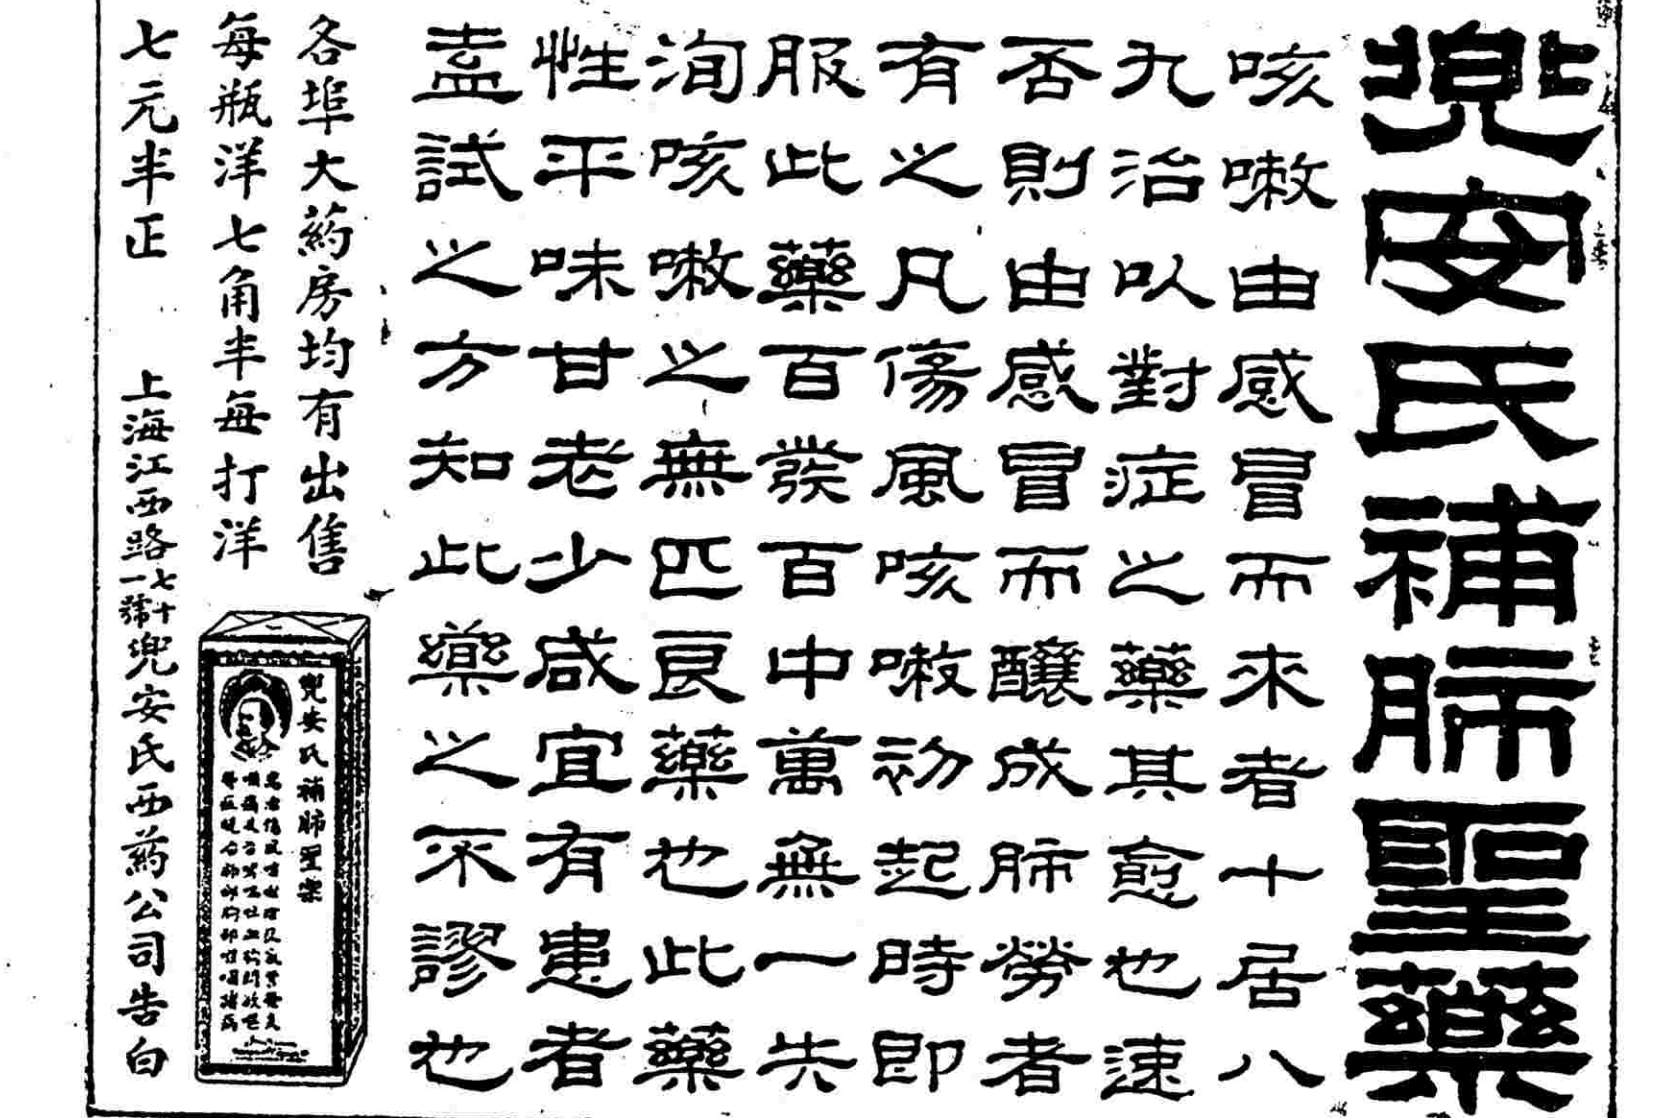 兜安氏補肺聖藥
咳嗽由感冒而來者十居八
九治以對症之藥其愈也速
否則由感冒而釀成肺勞者
有之凡傷風咳嗽初起時即
服此藥百發百中萬無一失
洵咳嗽之無匹良藥也此藥
性平味甘老少咸宜有患者
盍試之方知此藥之不謬也
各埠大葯房均有出售
每瓶洋七角半每打洋
七元半正
上海江西路七十一號兜安氏西葯公司告白
兜安氏補肺聖藥